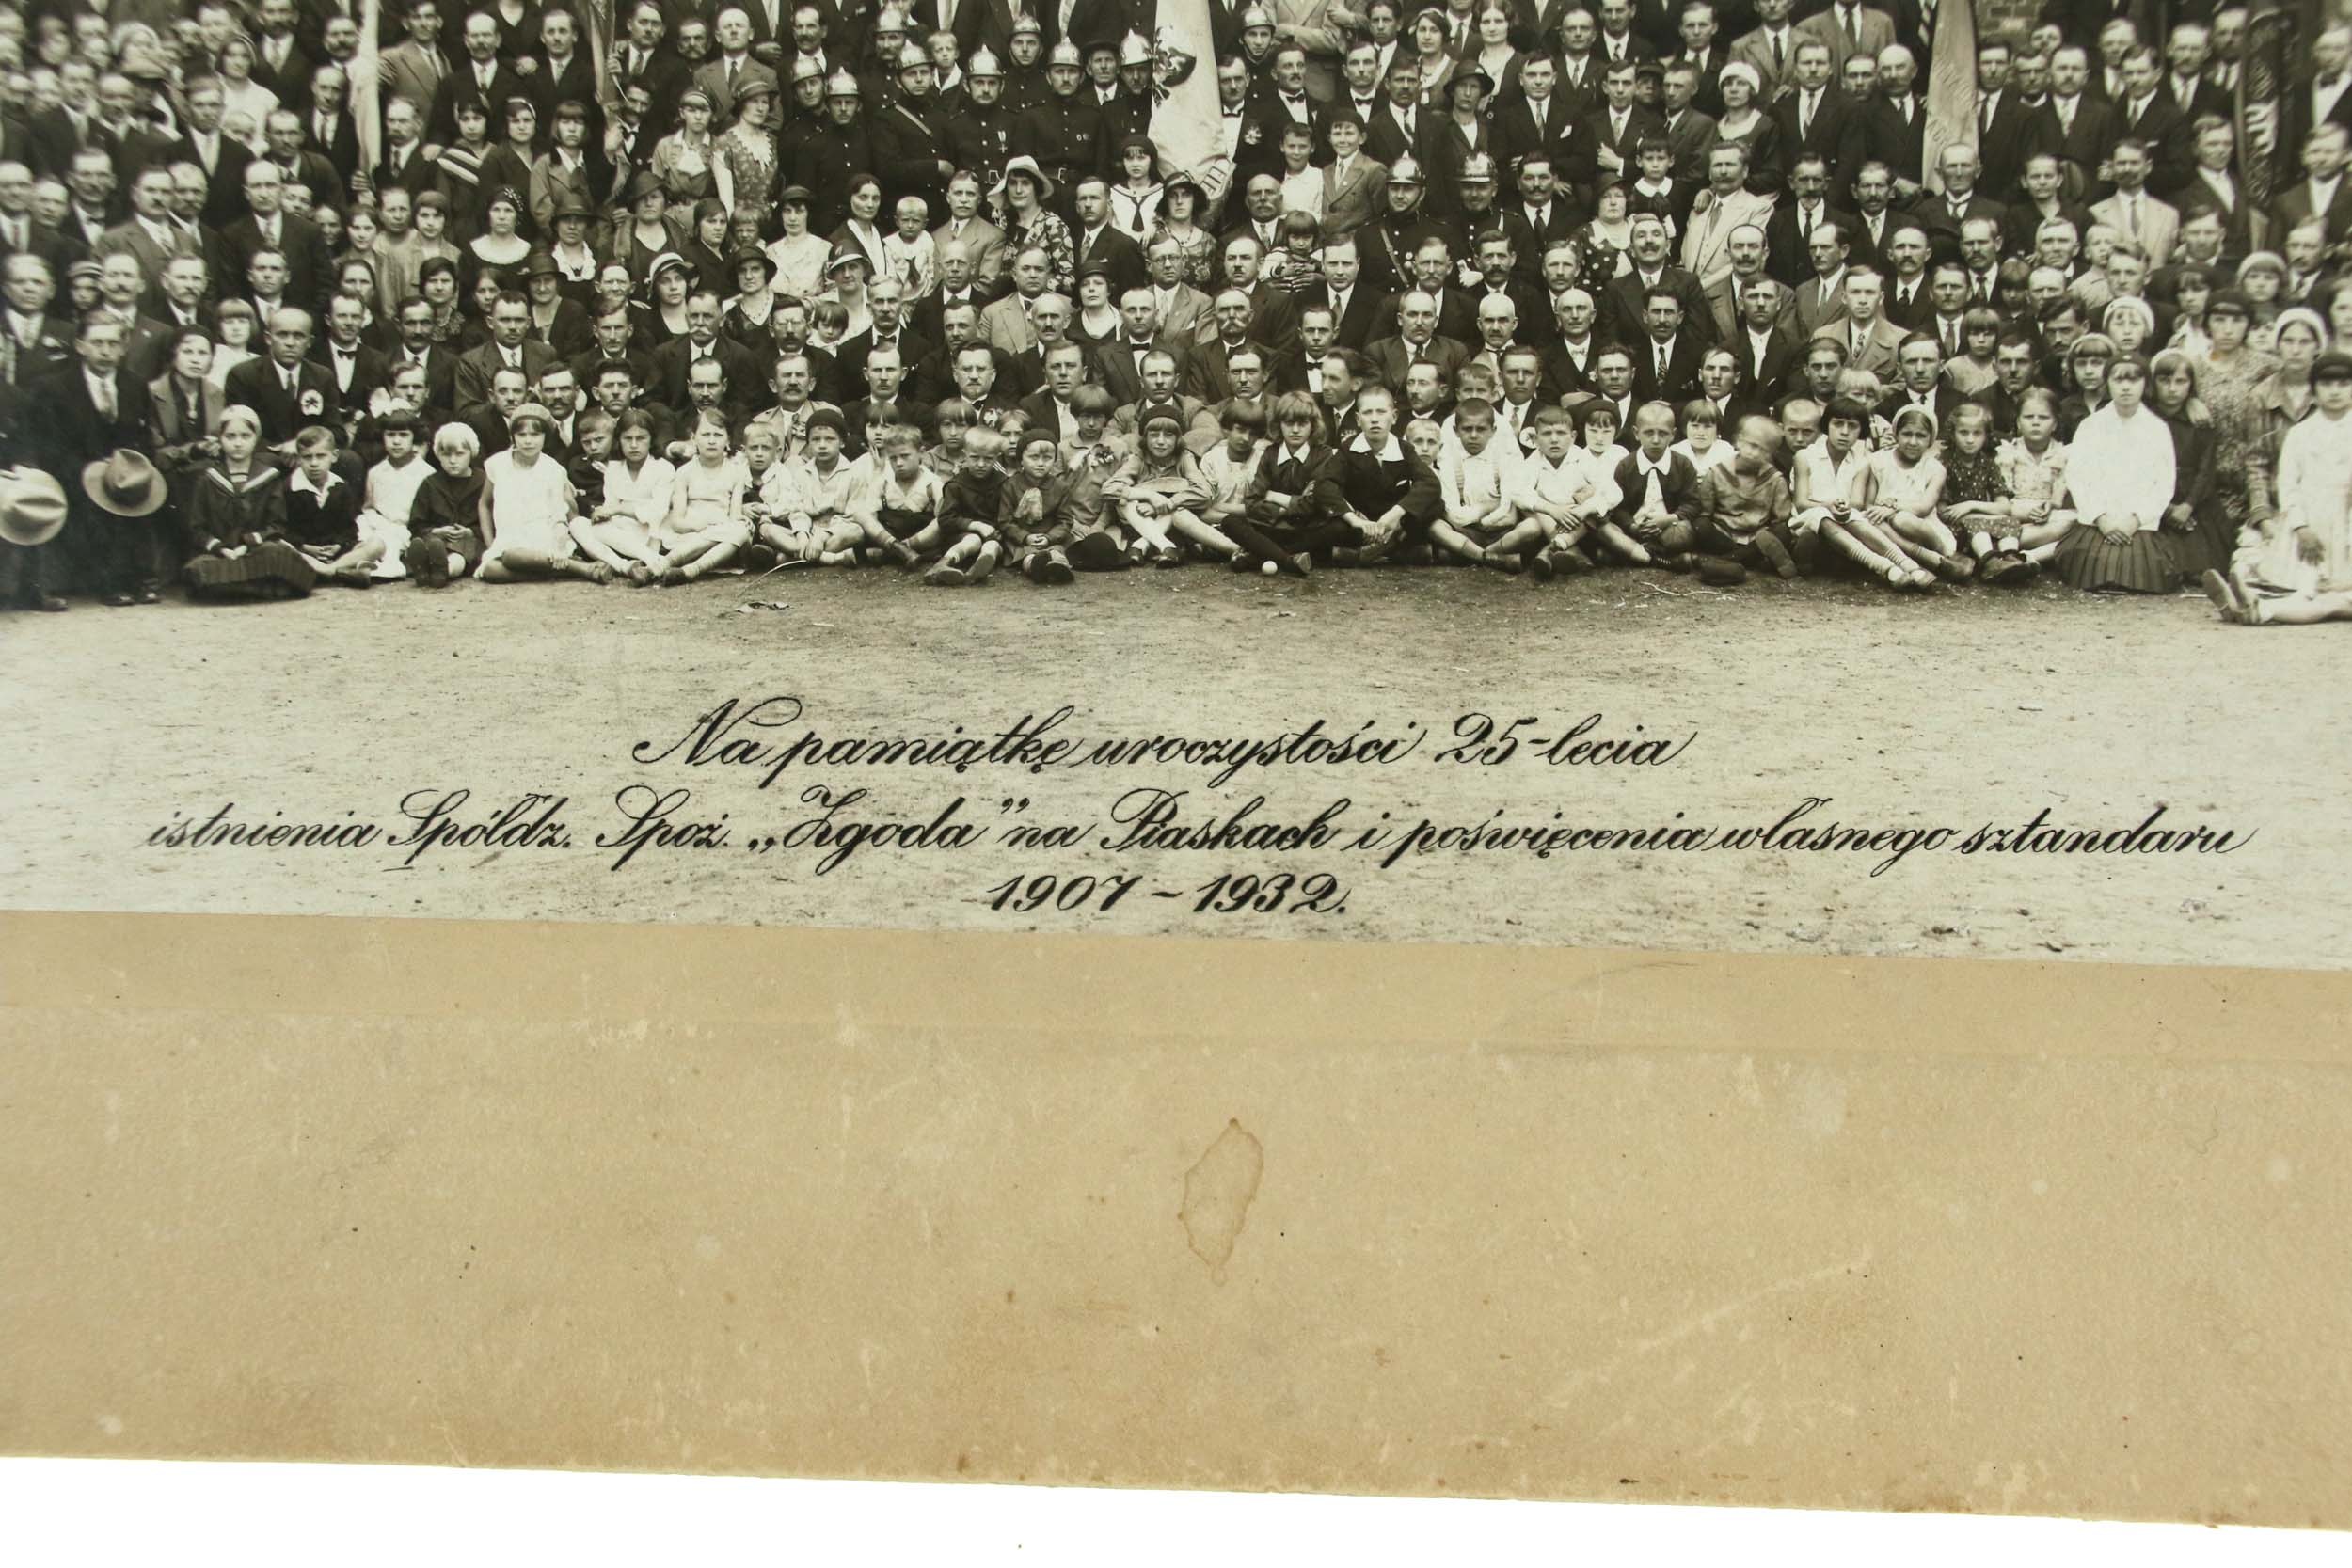 Na pamiątkę uroczystości 25-lecia
istnienia Spółdz. Spoż. „Zgoda" na Piaskach i poświęcenia własnego sztandaru
1907 - 1932.